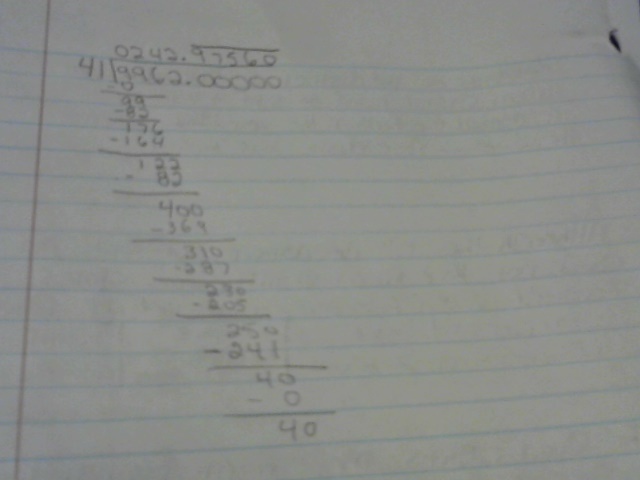 0242.97560
41 9962.00000
- 0
99
- 82
176
- 164
122
- 82
400
- 369
310
- 287
230
- 205
250
- 241
40
- 0
40